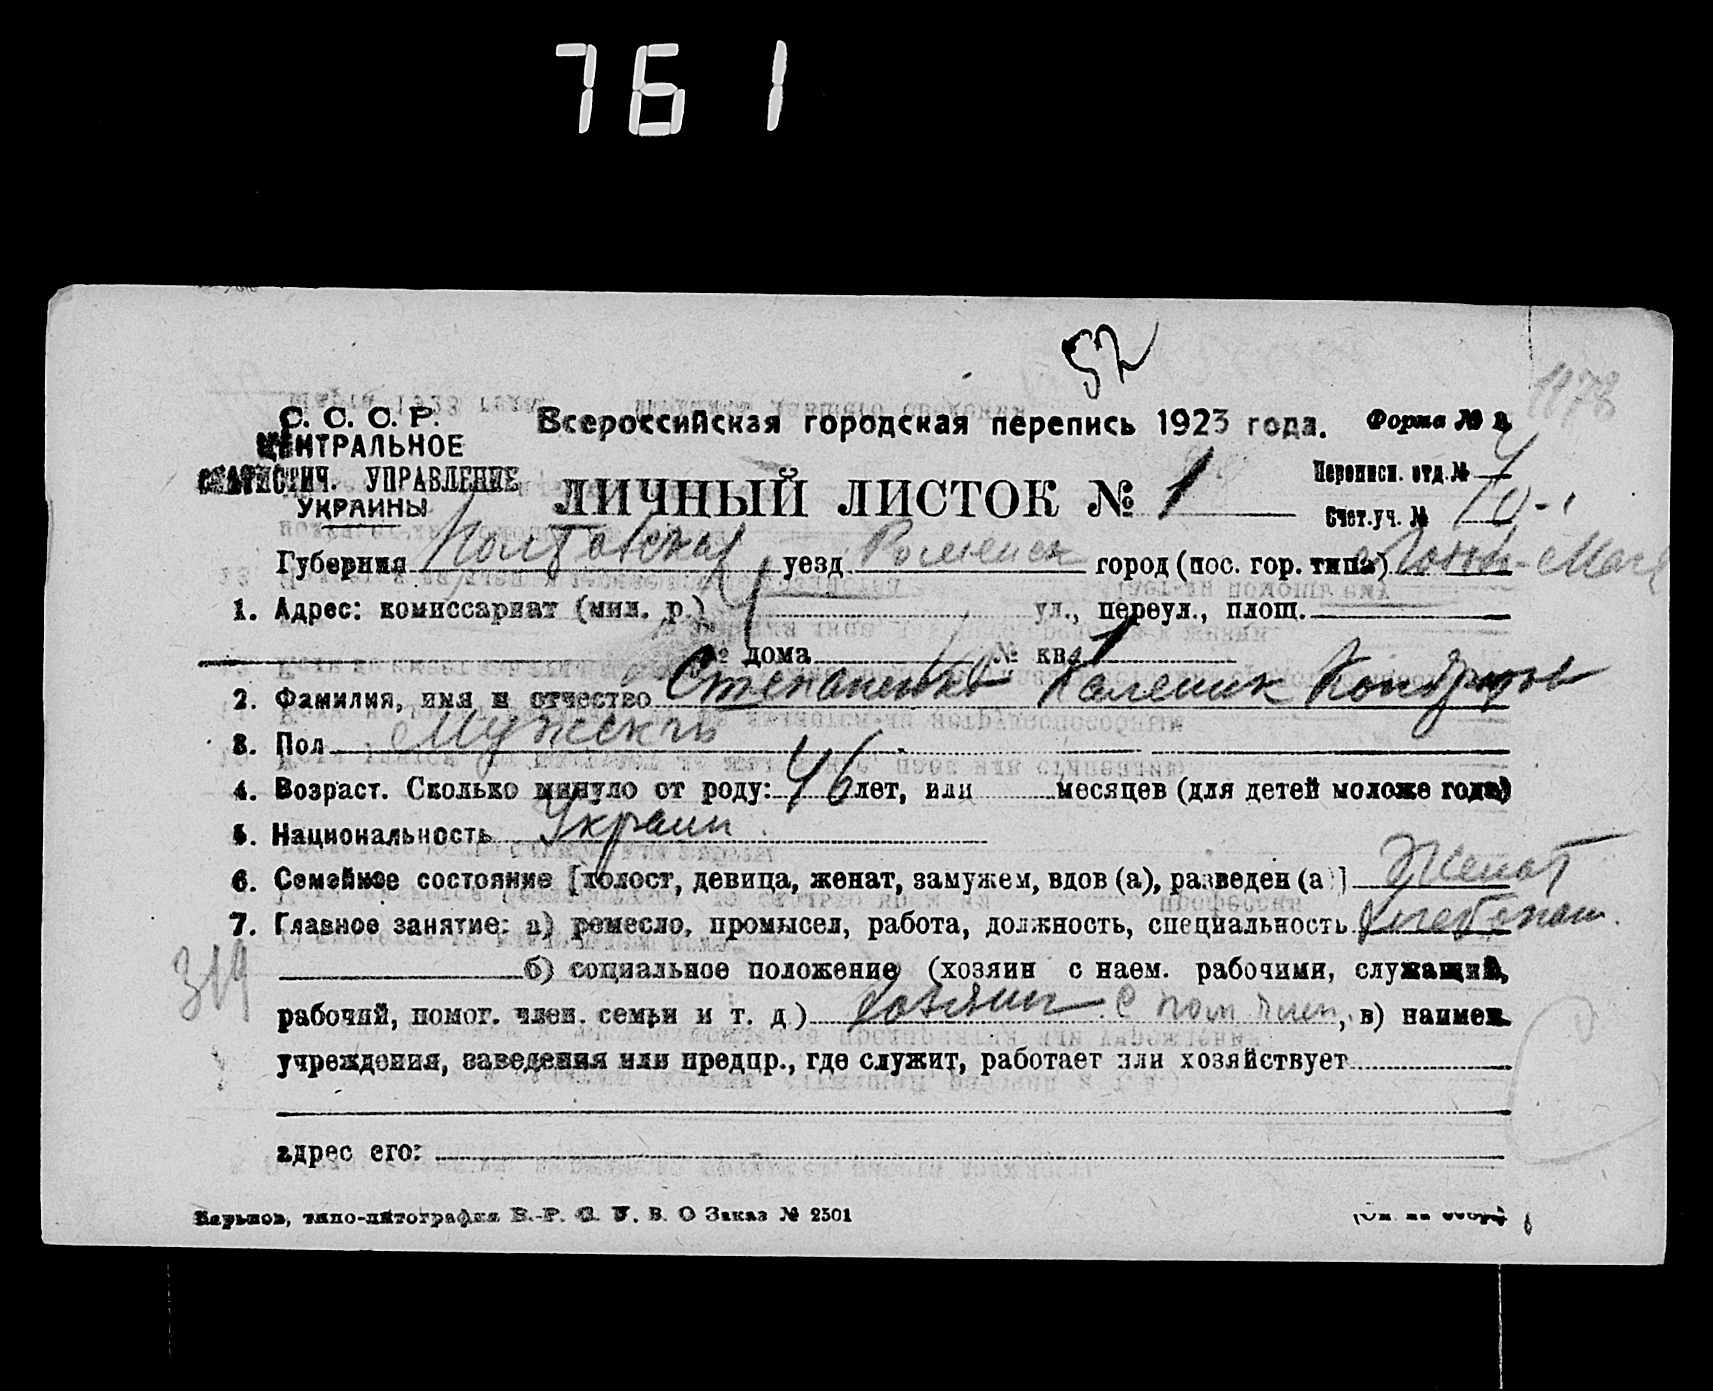 761
52
1178
С. С. С. Р.
ЦЕНТРАЛЬНОЕ
СТАТИСТИЧ. УПРАВЛЕНИЕ
УКРАИНЫ
Всероссийская городская перепись 1923 года.
Форма №
ЛИЧНЫЙ ЛИСТОК № 1
Переписн. отд. №
Счет.уч. № 10
Губерния Полтавская уезд Роменск город (пос. гор. типа)
1. Адрес: комиссариат (мил. р.) ул., переул., площ.
№ дома № кв. 1
2. Фамилия, имя и отчество Степаненко Каленик Кондратов
3. Пол Мужской
4. Возраст. Сколько минуло от роду: 46 лет, или месяцев (для детей моложе года)
5. Национальность Украин.
6. Семейное состояние [холост, девица, женат, замужем, вдов (а), разведен (а)] Женат
7. Главное занятие: а) ремесло, промысел, работа, должность, специальность хлебопаш.
319
б) социальное положение (хозяин с наем. рабочими, служащий,
рабочий, помог. член. семьи и т. д.) хозяин с пом член, в) наимен.
учреждения, заведения или предпр., где служит, работает или хозяйствует
адрес его:
Харьков, типо-литография В. О Заказ № 2501